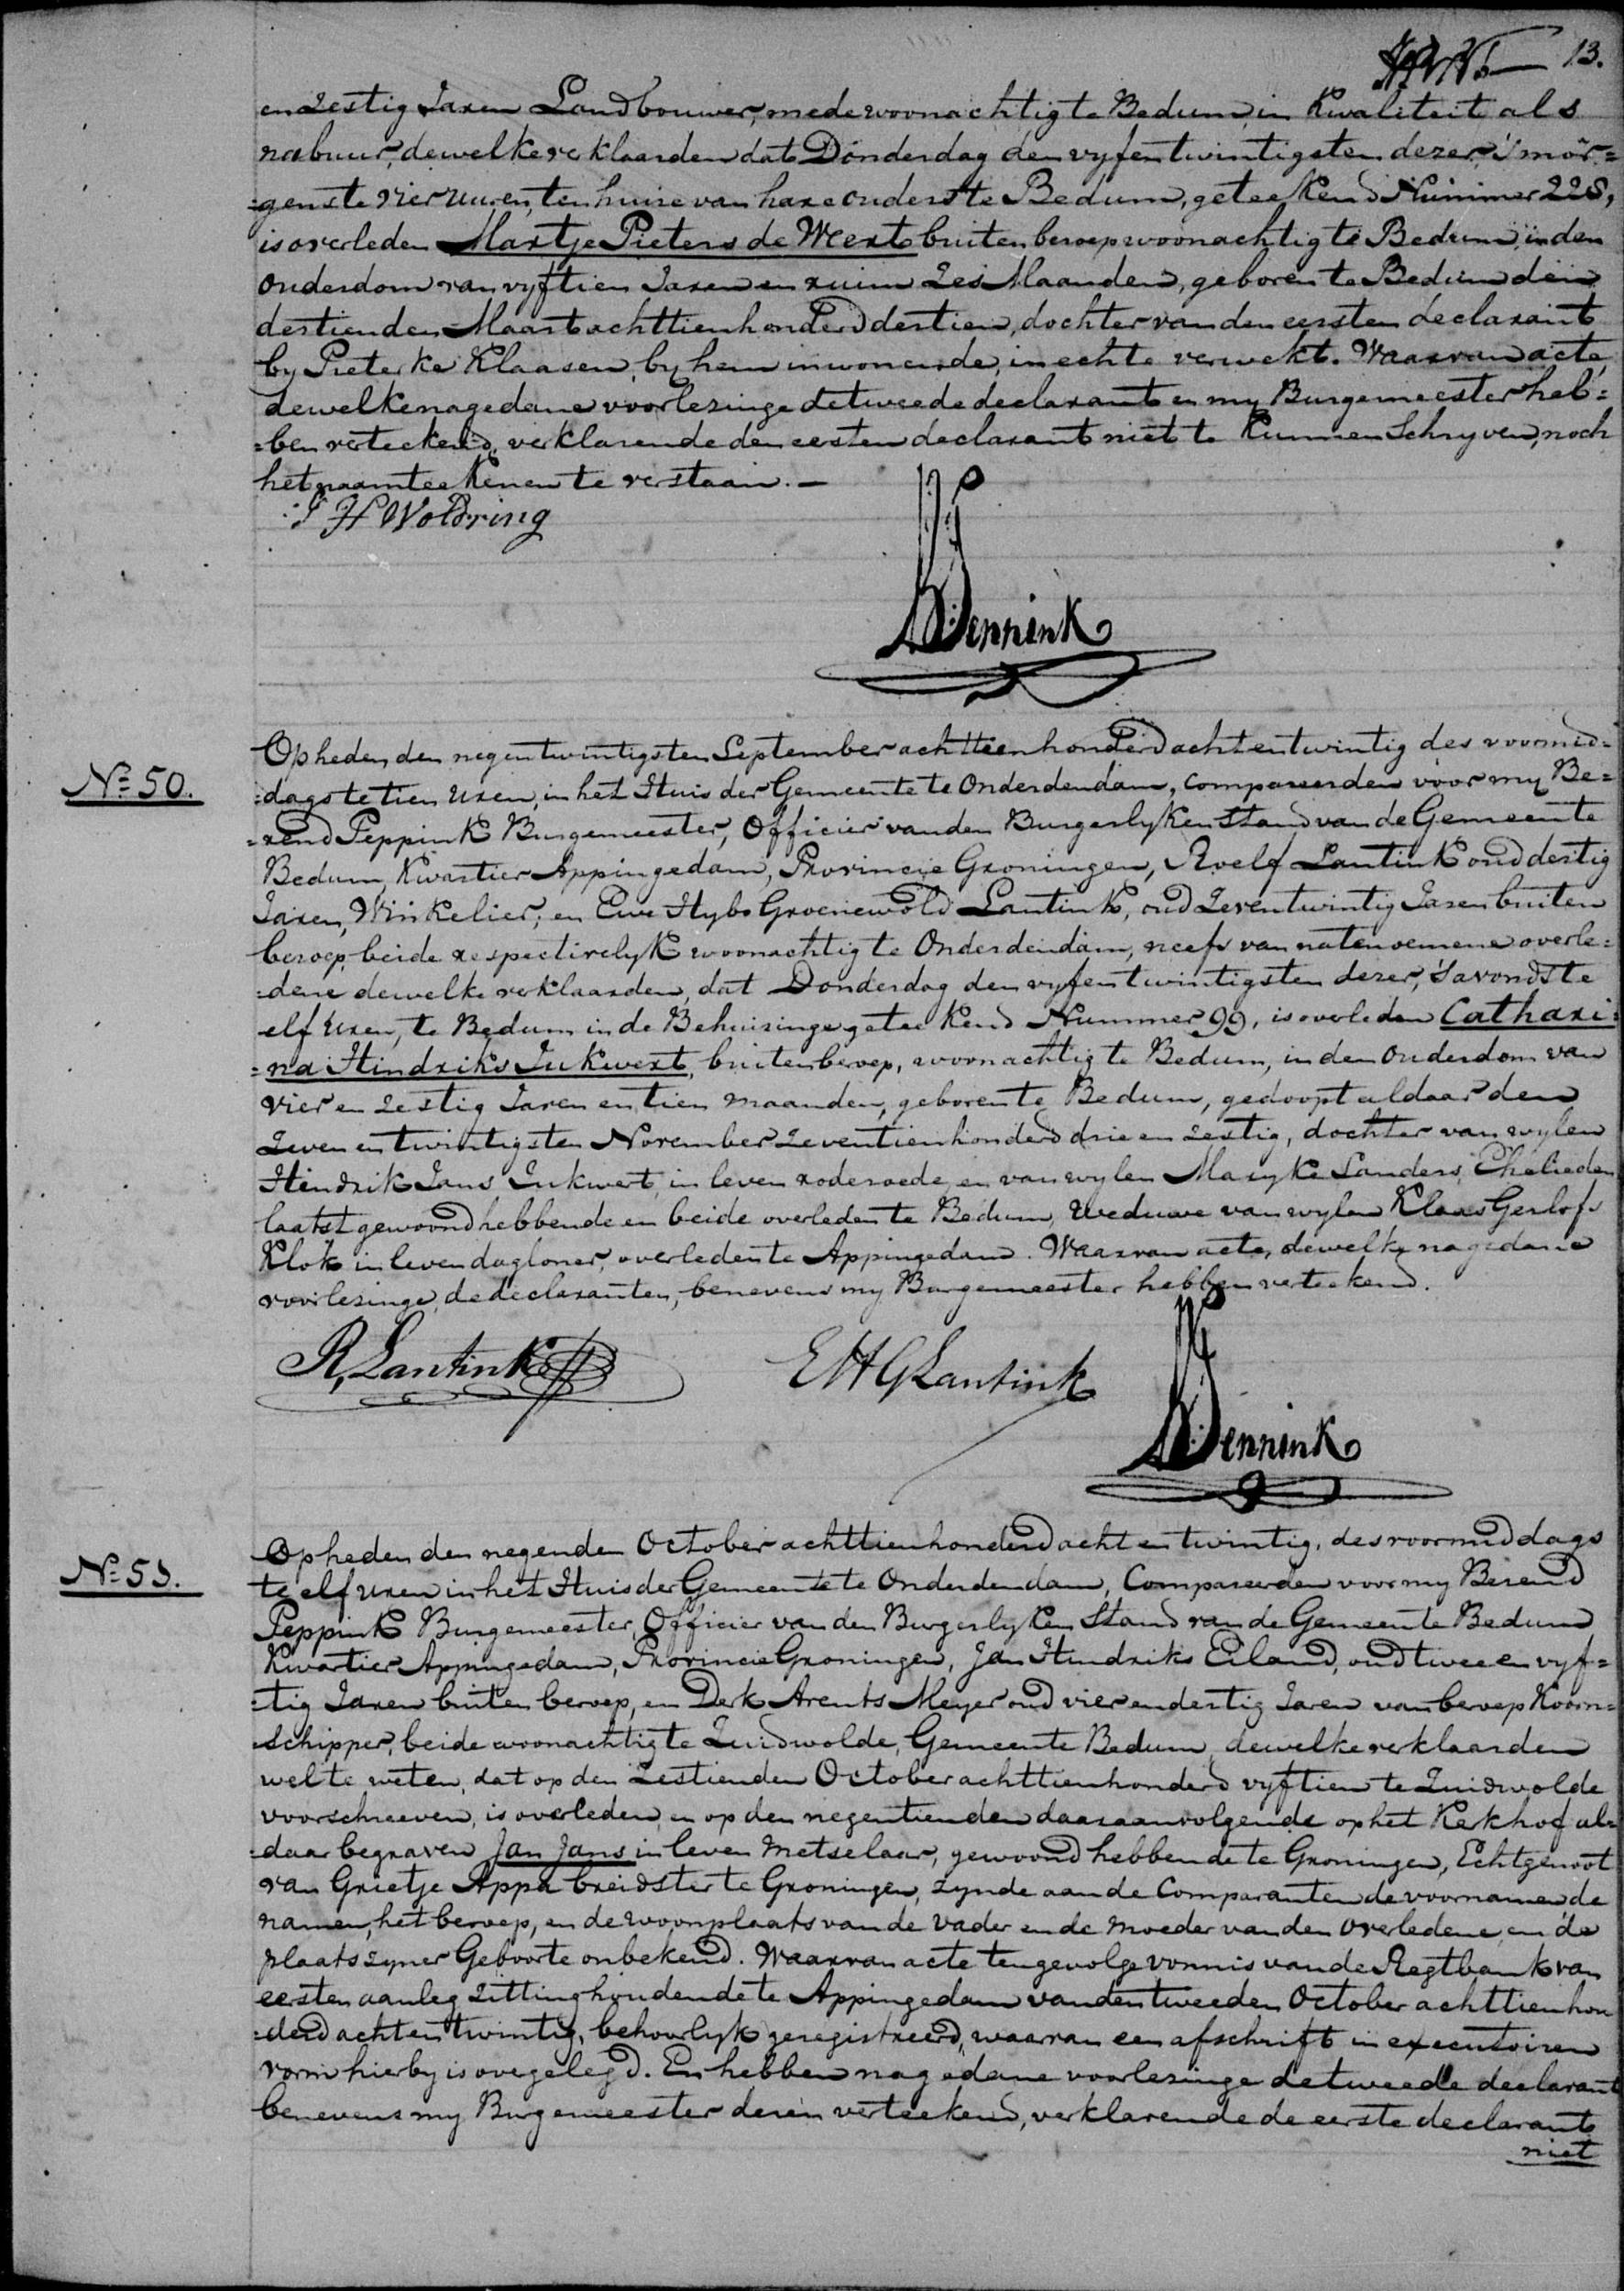 13.
en zestig Jaren Landbouwer, mede woonachtig te Bedum, in Kwaliteit als
nabuur, dewelke verklaarden dat Donderdag den vyfentwintigsten dezer, 's mor=
=gens te vier uuren, ten huize van hare ouders te Bedum, geteekend Nummer 228,
is overleden Martje Pieters de Weert buiten beroep woonachtig te Bedum, in den
ouderdom van vyftien Jaren en ruim Zes Maanden, geboren te Bedum den
dertienden Maart achttienhonderd dertien, dochter van den eersten declarant
by Pieterke Klaasen, by hem inwonende, in echte verwekt. Waarvan acte,
dewelke na gedane voorlezinge de tweede declarant en my Burgemeester heb=
=ben verteekend, verklarende den eersten declarant niet te Kunnen Schryven, noch
het naamteekenen te verstaan. —
J H Woldring
Bennink
No 50.
Op heden den negentwintigsten September achttienhonderd achtentwintig des voormid=
=dags te tien Uren, in het Huis der Gemeente te Onderdendam, compareerden voor my Be=
=rend Peppink Burgemeester, Officier van den Burgerlyken Stand van de Gemeente
Bedum, Kwartier Appingedam, Provincie Groningen, Roelf Lantink oud dertig
Jaren, Winkelier, en Ewe Hybo Groenewold Lantink, oud Zeventwintig Jaren buiten
beroep, beide respectivelyk woonachtig te Onderdendam, neefs van natenoemene overle=
=dene dewelke verklaarden, dat Donderdag den vyfentwintigsten dezer, 's avonds te
elf Uren, te Bedum in de Behuizinge geteekend Nummer 99, is overleden Cathari=
=na Hindriks Inkwert, buiten beroep, woonachtig te Bedum, in den Ouderdom van
vier en Zestig Jaren en tien maanden, geboren te Bedum, gedoopt aldaar den
Zeven en twintigsten November Zeventienhonderd drie en Zestig, dochter van wylen
Hindrik Jans Inkwert, in leven roderoede, en van wylen Maryke Sanders, Ehelieden
laatst gewoond hebbende en beide overleden te Bedum, Weduwe van wylen Klaas Gerlofs
Klok in leven dagloner, overleden te Appingedam. Waarvan acte, dewelke na gedane
voorlezinge, de declaranten, benevens my Burgemeester hebben verteekend.
R, Lantink
E H G Lantink
Bennink
No 51.
Op heden den negenden October achttienhonderd acht en twintig, des voormiddags
te elf Uren in het Huis der Gemeente te Onderdendam, Compareerden voor my Berend
Peppink Burgemeester, Officier van den Burgerlyken Stand van de Gemeente Bedum
Kwartier Appingedam, Provincie Groningen, Jan Hindriks Eiland, oud twee en vyf=
=tig Jaren buiten beroep, en Derk Arents Meyer oud vier en dertig Jaren van beroep Koorn=
=schipper, beide woonachtig te Zuidwolde, Gemeente Bedum, dewelke verklaarden
wel te weten, dat op den Zestienden October achttienhonderd vyftien te Zuidwolde
voorschreeven, is overleden, en op den negentienden daaraanvolgende op het Kerkhof al=
=daar begraven Jan Jans in leven Metselaar, gewoond hebbende te Groningen, Echtgenoot
van Grietje Appa breidster te Groningen, zynde aan de Comparanten de voornamen, de
namen, het beroep, en de woonplaats van de Vader en de Moeder van den Overledene, en de
plaats zyner Geboorte onbekend. Waarvan acte ten gevolge vonnis van de Regtbank van
eersten aanleg Zitting houdende te Appingedam van den tweeden October achttienhon
=derd achtentwintig, behoorlyk geregistreerd, waarvan een afschrift in executoiren
vorm hierby is overgelegd. En hebben na gedane voorlezinge de tweede declarant
benevens my Burgemeester dezen verteekend, verklarende de eerste declarant
niet